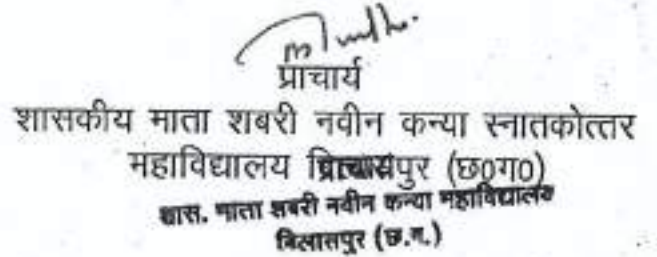 प्राचार्य
शासकीय माता शबरी नवीन कन्या स्नातकोत्तर
महाविद्यालय बिलासपुर (छ0ग0)
प्राचार्य
शास. माता शबरी नवीन कन्या महाविद्यालय
बिलासपुर (छ.ग.)